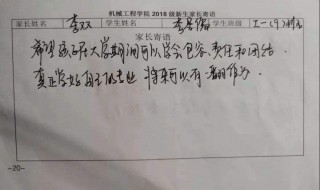 机械工程学院 2018 级新生家长寄语
家长姓名 李双 学生姓名 李 学生班级
家长寄语
希望孩子在大学期间可以学会包容、责任和团结
真正学好自己的专业 将来可以有一番作为
-20-